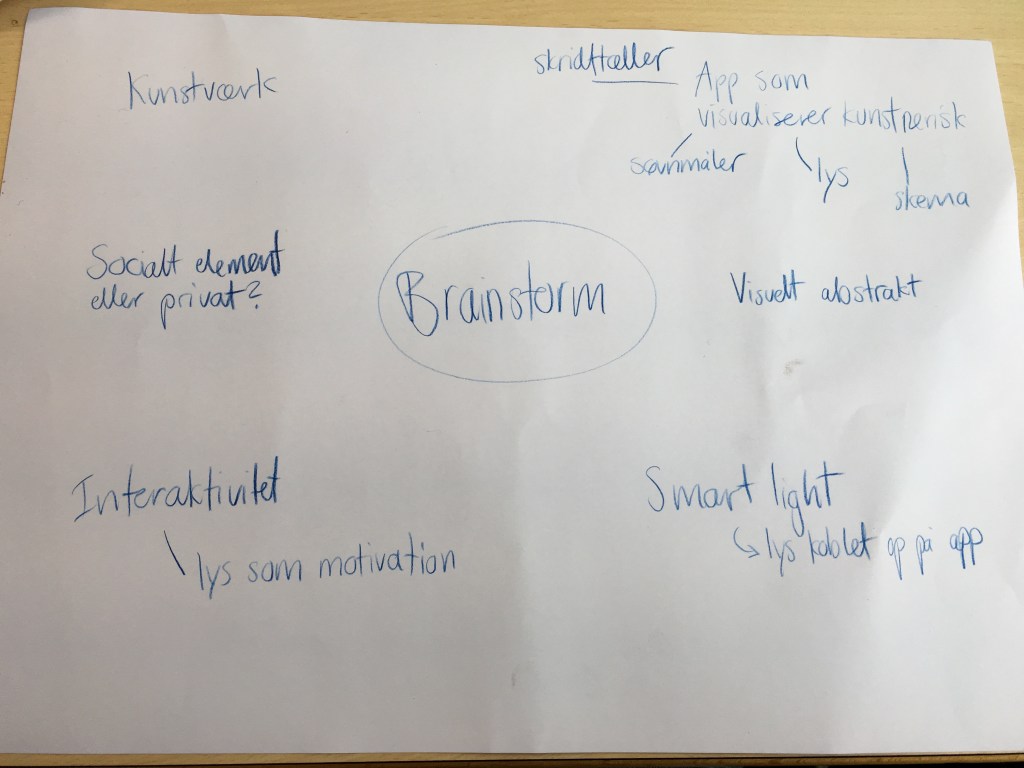 Kunstværk
skridttæller
App som
visualiserer kunstnerisk
søvnmåler
lys
skema
Socialt element
eller privat?
Brainstorm
Visuelt abstrakt
Interaktivitet
lys som motivation
Smart light
lys koblet op på app